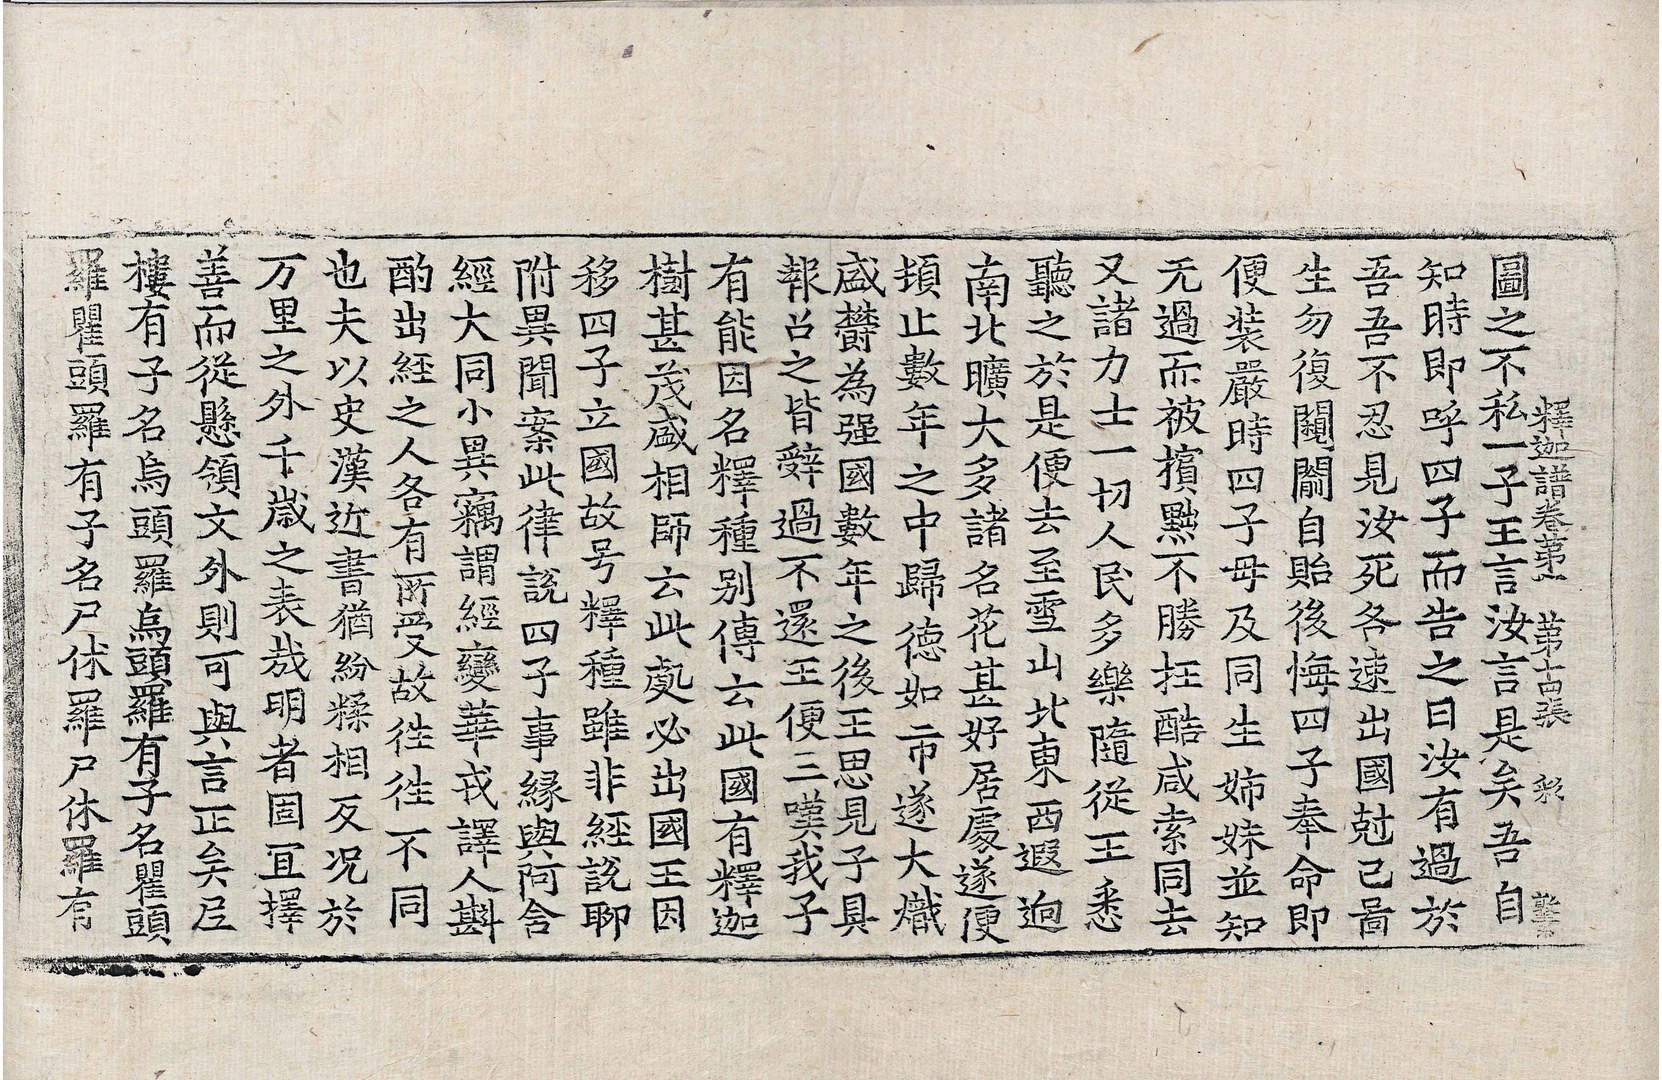 釋迦譜卷第一 第十四張 彩
圖之不私一子王言汝言是矣吾自
知時即呼四子而告之曰汝有過於
吾吾不忍見汝死各速出國尅己啚
生勿復闚𨵦自貽後悔四子奉命即
便装嚴時四子母及同生姉妹並知
无過而被擯黜不勝抂酷咸索同去
又諸力士一切人民多樂隨從王悉
聽之於是便去至雪山北東西遐逈
南北曠大多諸名花甚好居處遂便
頓止數年之中歸德如市遂大熾
盛欝為强國數年之後王思見子具
報召之皆辤過不還王便三嘆我子
有能因名釋種别傳云此國有釋迦
樹甚茂盛相師云此處必出國王因
移四子立國故号釋種雖非經說聊
附異聞案此律說四子事縁與阿含
經大同小異竊謂經變華戎譯人斟
酌出經之人各有所受故徃徃不同
也夫以史漢近書猶紛糅相反况於
万里之外千歳之表哉明者固宜擇
善而從懸領文外則可與言正矣𡰱
樓有子名烏頭羅烏頭羅有子名瞿頭
羅瞿頭羅有子名尸休羅尸休羅有